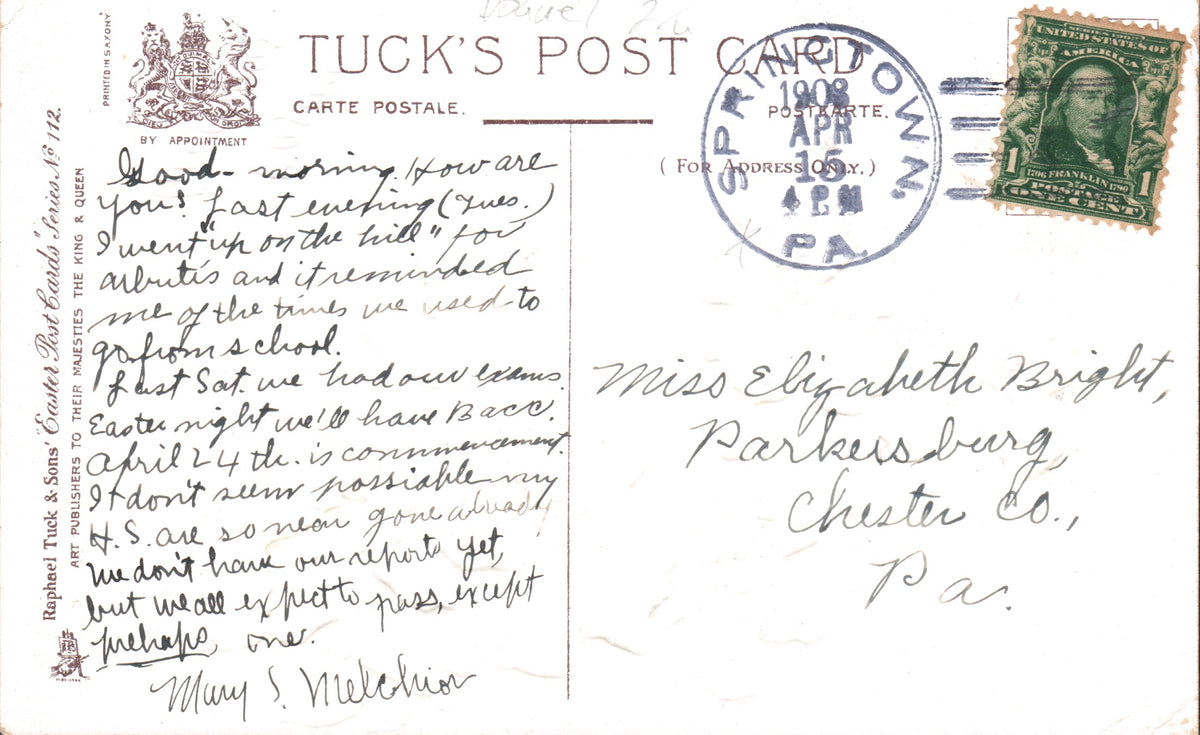 PRINTED IN SAXONY
BY APPOINTMENT
TUCK'S POST CARD
CARTE POSTALE.
POSTKARTE.
( FOR ADDRESS ONLY. )
Raphael Tuck & Sons' "Easter Post Cards" Series No 112.
ART PUBLISHERS TO THEIR MAJESTIES THE KING & QUEEN
SPRINGTOWN,
1908
APR
15
4 PM
PA.
UNITED STATES OF
AMERICA
1 1
1706 FRANKLIN 1790
POSTAGE
ONE CENT
Good-morning. How are
you? Last evening (Tues.)
I went "up on the hill" for
arbutis and it reminded
me of the times we used to
go from school.
Last Sat. we had our exams.
Easter night we'll have Bacc.
April 24th. is commencement.
It don't seem possiable my
H.S. are so near gone already
We don't have our reports yet,
but we all expect to pass, except
perhaps, one.
Mary S. Melchior
Miss Elizabeth Bright,
Parkersburg,
Chester Co.,
Pa.